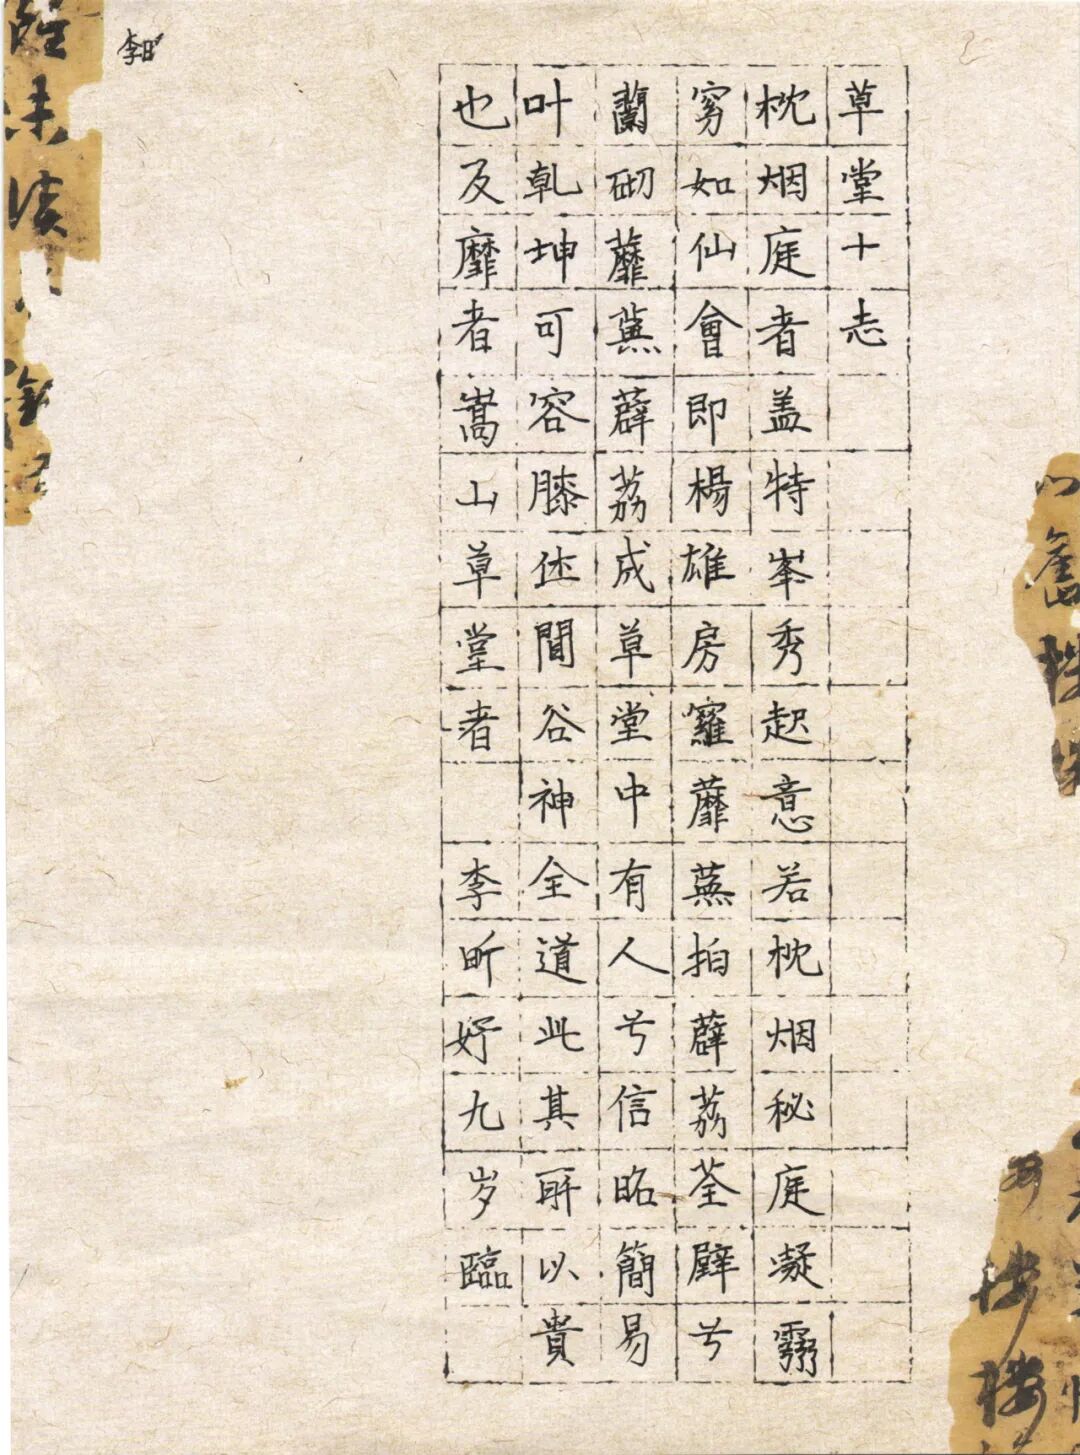 草堂十志
枕烟庭者盖特峯秀起意若枕烟秘庭凝
如仙會即楊雄房羅蘼蕪拍薜荔荃壁兮
蘭砌蘼蕪薜荔成草堂中有人兮信昭簡易
叶乾坤可容膝休閒谷神全道此其所以貴
也及靡者嵩山草堂者 李昕妤九岁臨